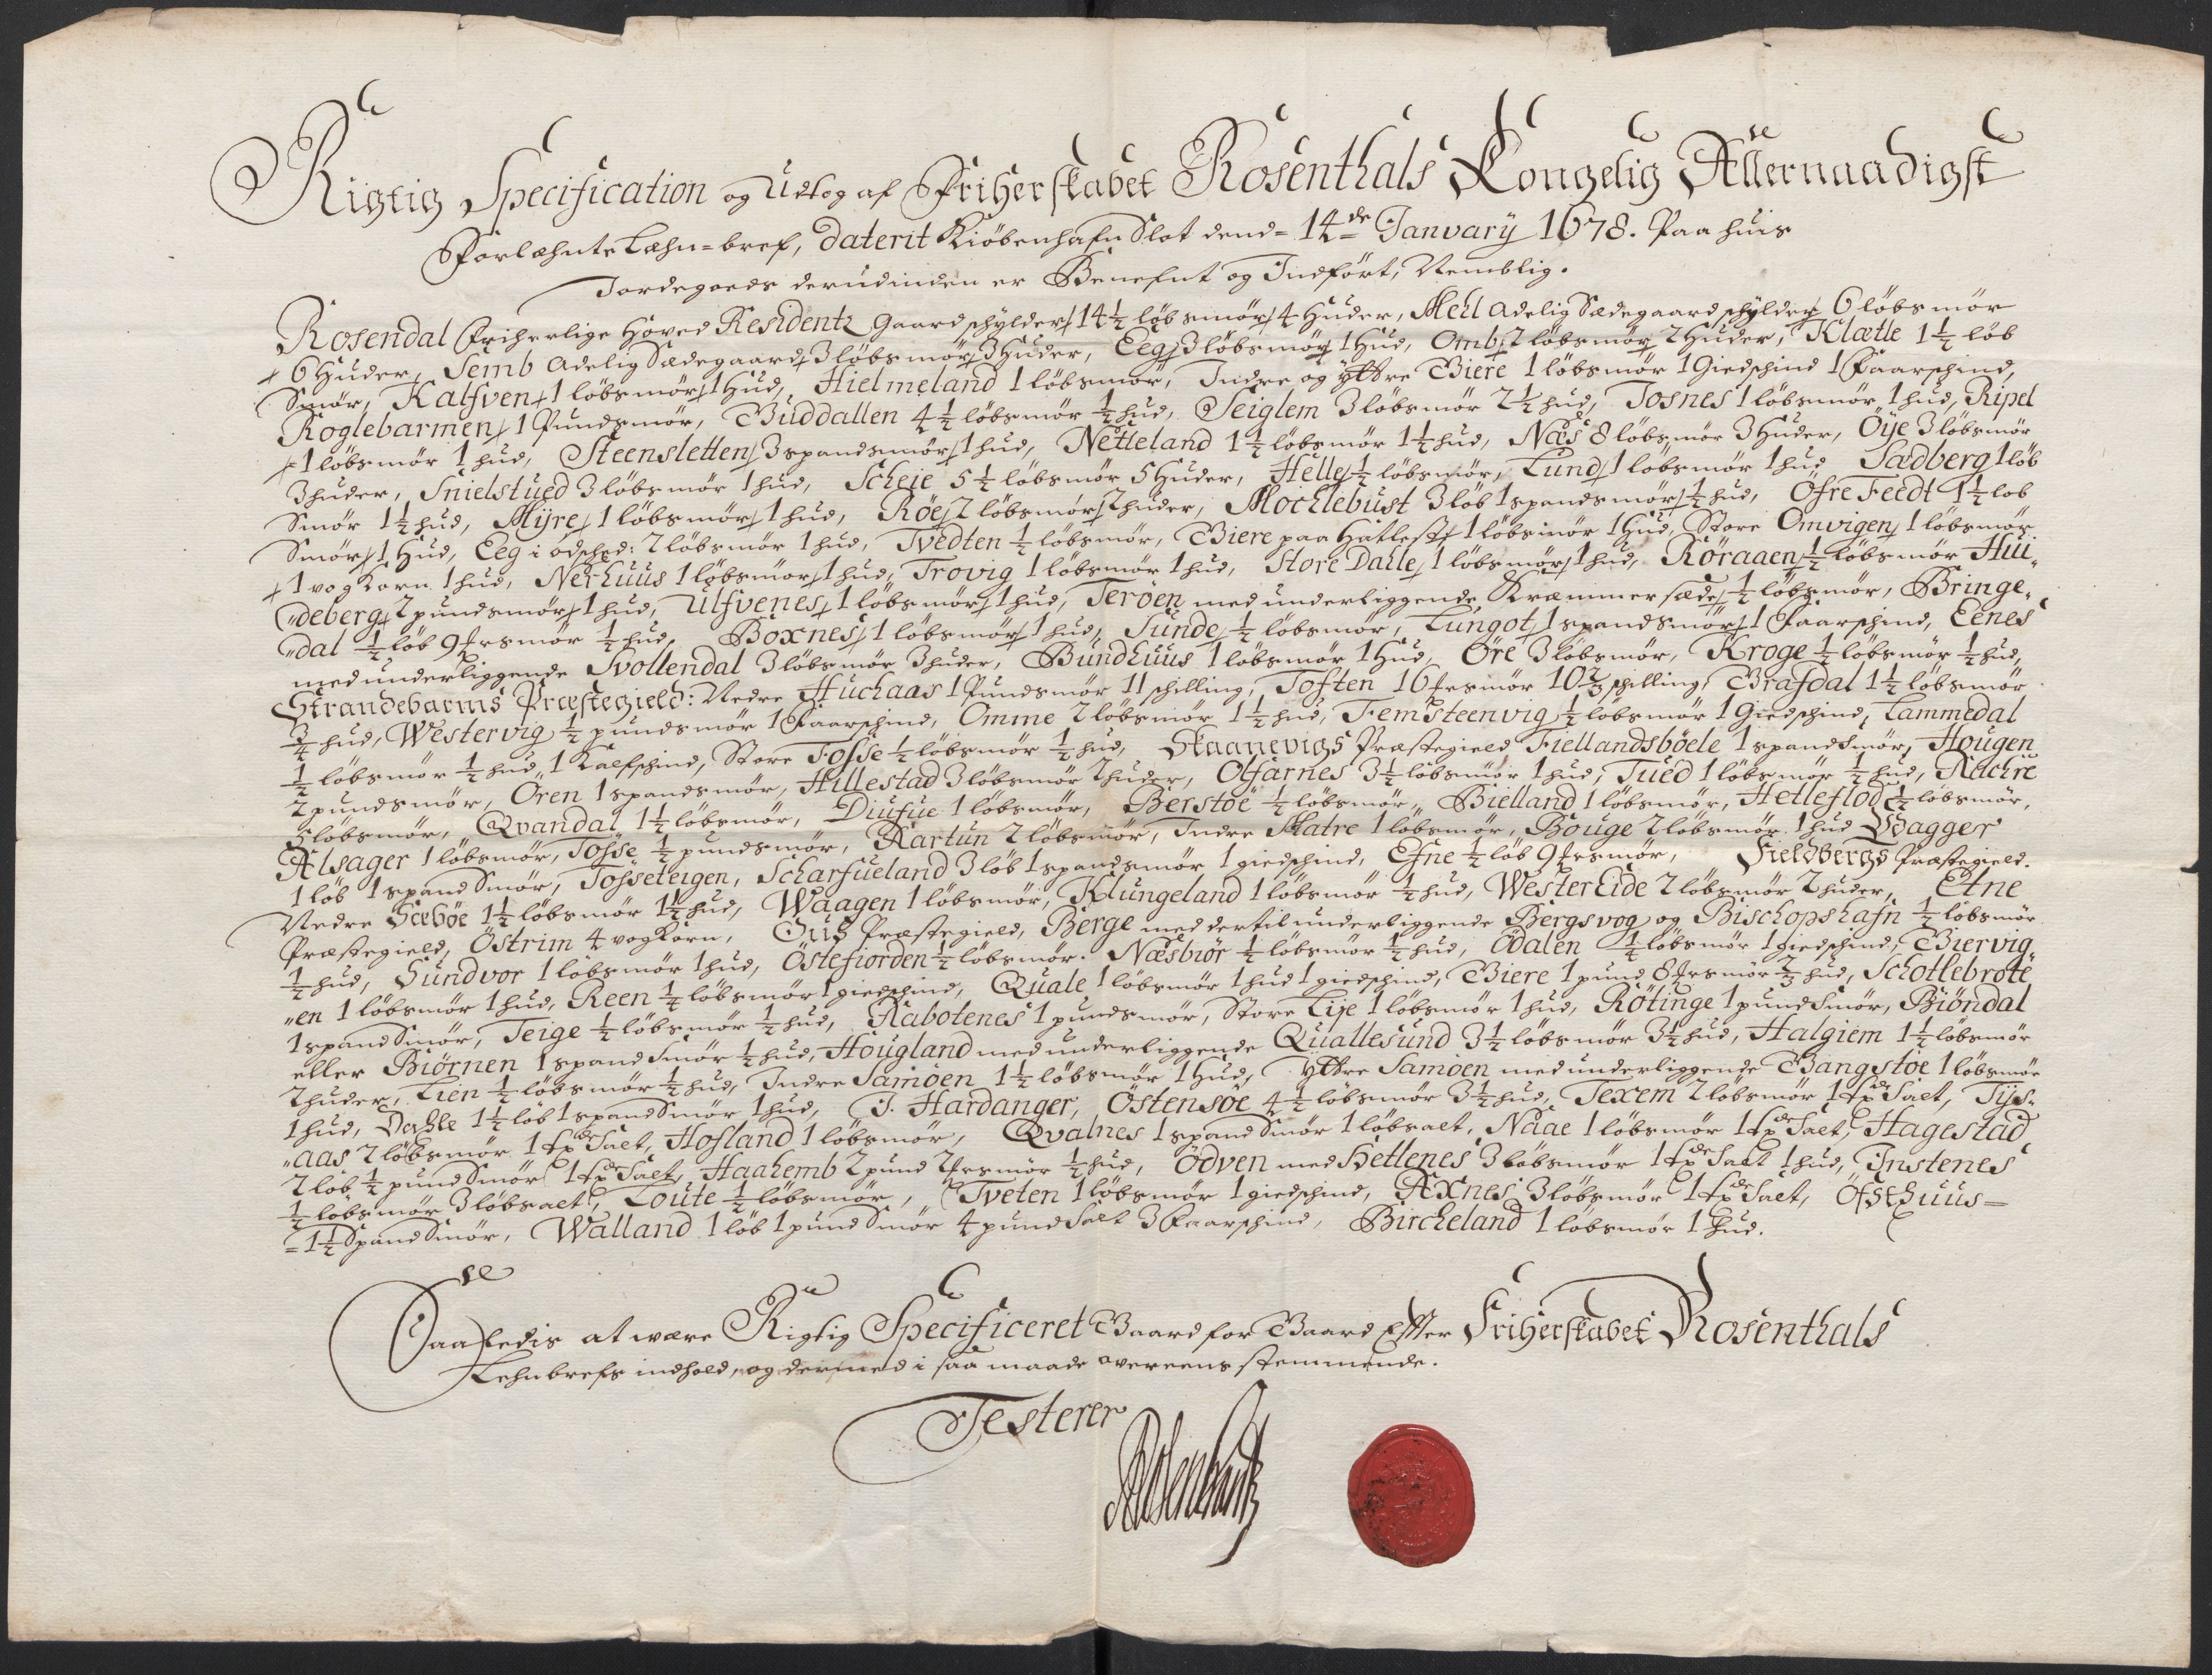 Rigtig Specification og Udtog af Friherskabet Rosenthals Kongelig Allernaadigst
Forlæhnte Læhn=bref, daterit Kiöbenhafn Slot dend= 14de January 1678. Paa huis
Jordegoeds derudinden er Benefnt og Indfört, Nemblig.
Rosendal Friherlige Hoved Residentz Gaard schylder 14½ löb smör 4 Huder, Mehl Adelig Sædegaard schylder 6 löbsmör
6 Huder, Semb Adelig Sædegaard 3 löbsmör 3 Huder, Eeg 3 löbsmör 1 Hud, Omb 2 löbsmör 2 Huder, Klætte 1½ löb
Smör, Kalfven 1 löbsmör 1 Hud, Hielmeland 1 löbsmör, Indre og yttre Biere 1 löbsmör 1 Giedschind 1 Faarschind,
Roglebarmen 1 Pundsmör, Buddallen 4½ löbsmör ½ hud, Seiglem 3 löbsmör 2½ hud, Tosnes 1 löbsmör 1 hud, Ripel
1 löbsmör 1 hud, Steensletten 3 spandsmör 1 hud, Netteland 1½ löbsmör 1½ hud, Næs 8 löbsmör 3 Huder, Öye 3 löbsmör
3 huder, Snielstued 3 löbsmör 1 hud, Scheie 5½ löbsmör 5 Huder, Helle ½ löbsmör, Lund 1 löbsmör 1 hud Sædberg 1 löb
Smör 1½ hud, Myre 1 löbsmör 1 hud, Röe 2 löbsmör 2 huder, Mochlebust 3 löb 1 spandsmör ½ hud, Öfre Feedt 1½ löb
Smör 1 Hud, Eeg i ödsched: 2 löbsmör 1 hud, Tvedten ½ löbsmör, Biere paa Hatlest 1 löbsmör 1 Hud, Store Omvigen 1 löbsmör
1 vog Korn 1 hud, Nerhuus 1 löbsmör 1 hud, Trovig 1 löbsmör 1 hud, Store Dalle 1 löbsmör 1 hud, Röraaen ½ löbsmör Hui„
„deberg 2 pundsmör 1 hud, Ulfvenes 1 löbsmör 1 hud, Teröen med underliggende Kræmmersæde ½ löbsmör, Bringe„
„dal ½ löb 9 mrsmör ½ hud, Boxnes 1 löbsmör 1 hud, Sunde ½ löbsmör, Lungot 1 spandsmör 1 Faarschind, Eenes
med underliggende Svollendal 3 löbsmör 3 huder, Bundhuus 1 löbsmör 1 Hud, Öre 3 löbsmör, Kroge ½ löbsmör ½ hud,
Strandebarms Præstegield: Nedre Huchaas 1 Pundsmör 11 schilling, Toften 16 mrsmör 10⅔ schilling, Brafdal 1½ löbsmör
¾ hud, Westervig ½ pundsmör 1 Faarschind, Omme 2 löbsmör 1½ hud, Femsteenvig ½ löbsmör 1 Giedschind, Lammedal
½ löbsmör ½ hud 1 Kalfschind, Store Fosse ½ löbsmör ½ hud, Skaanevigs Præstegield Fiellandsböele 1 spandsmör, Hougen
2 pundsmör, Ören 1 spandsmör, Hillestad 3 löbsmör 2 huder, Olfarnes 3½ löbsmör 1 hud, Tued 1 löbsmör ½ hud, Aachre
5 löbsmör, Qvandal 1½ löbsmör, Diufue 1 löbsmör, Berstöe ½ löbsmör, Bielland 1 löbsmör, Hetleflod ½ löbsmör,
Alsager 1 löbsmör, Tosse ½ pundsmör, Aartun 2 löbsmör, Indre Matre 1 löbsmör, Bouge 2 löbsmör 1 hud Wagger
1 löb 1 spand Smör, Tosseteigen, Scharfueland 3 löb 1 spandsmör 1 giedschind, Efne ½ löb 9 mrsmör, Fieldbergs Præstegield.
Nedre Sæböe 1½ löbsmör 1½ hud, Waagen 1 löbsmör, Klungeland 1 löbsmör ½ hud, Wester Eide 2 löbsmör 2 huder, Etne
Præstegield, Östrim 4 vog Korn, Ous Præstegield, Berge med dertil underliggende Bergsvog og Bischopshafn ½ löbsmör
½ hud, Sundvor 1 löbsmör 1 hud, Östefiorden ½ löbsmör. Næsbiör ½ löbsmör ½ hud, Ödalen ½ löbsmör 1 giedschind, Biervig„
„en 1 löbsmör 1 hud, Reen ½ löbsmör 1 giedschind, Quale 1 löbsmör 1 hud 1 giedschind, Biere 1 pund 8 mrsmör ⅔ hud, Schotlebrote
1 spand Smör, Teige ½ löbsmör ½ hud, Aabotenes 1 pundsmör, Store Lije 1 löbsmör 1 hud, Rötinge 1 pund Smör, Biöndal
eller Biörnen 1 spand Smör ½ hud, Hougland med underliggende Quallesund 3½ löbsmör 3½ hud, Halgiem 1½ löbsmör
2 huder, Lien ½ löbsmör ½ hud, Indre Samöen 1½ löbsmör 1 Hud, Yttre Samöen med underliggende Bangstöe 1 löbsmör
1 hud, Dahle 1½ löb 1 spand Smör 1 hud, J. Hardanger, Östensöe 4½ löbsmör 3½ hud, Texem 2 löbsmör 1 Salt, Tijs„
„aas 2 löbsmör 1 Salt, Hofland 1 löbsmör, Qvalnes 1 spand Smör 1 löbsalt, Naae 1 löbsmör 1 Salt, Hagestad
2 löb ½ pund Smör 1 Salt, Haahemb 2 pund 2 mrsmör ½ hud, Ödven med Hetlenes 3 löbsmör 1 Salt 1 hud, Instenes
½ löbsmör 3 löbsalt, Loute ½ löbsmör, Tveten 1 löbsmör 1 giedschind, Axnes 3 löbsmör 1 Salt, Öfsthuus=
=1½ Spand Smör, Walland 1 löb 1 pund Smör 4 pund Salt 3 Faarschind, Bircheland 1 löbsmör 1 hud.
Saaledis at være Rigtig Specificeret Gaard for Gaard Efter Friherskabet Rosenthals
Lehnbrefs indhold, og dermed i saa maade overeens stemmende.
Testerer
Rosenkrantz